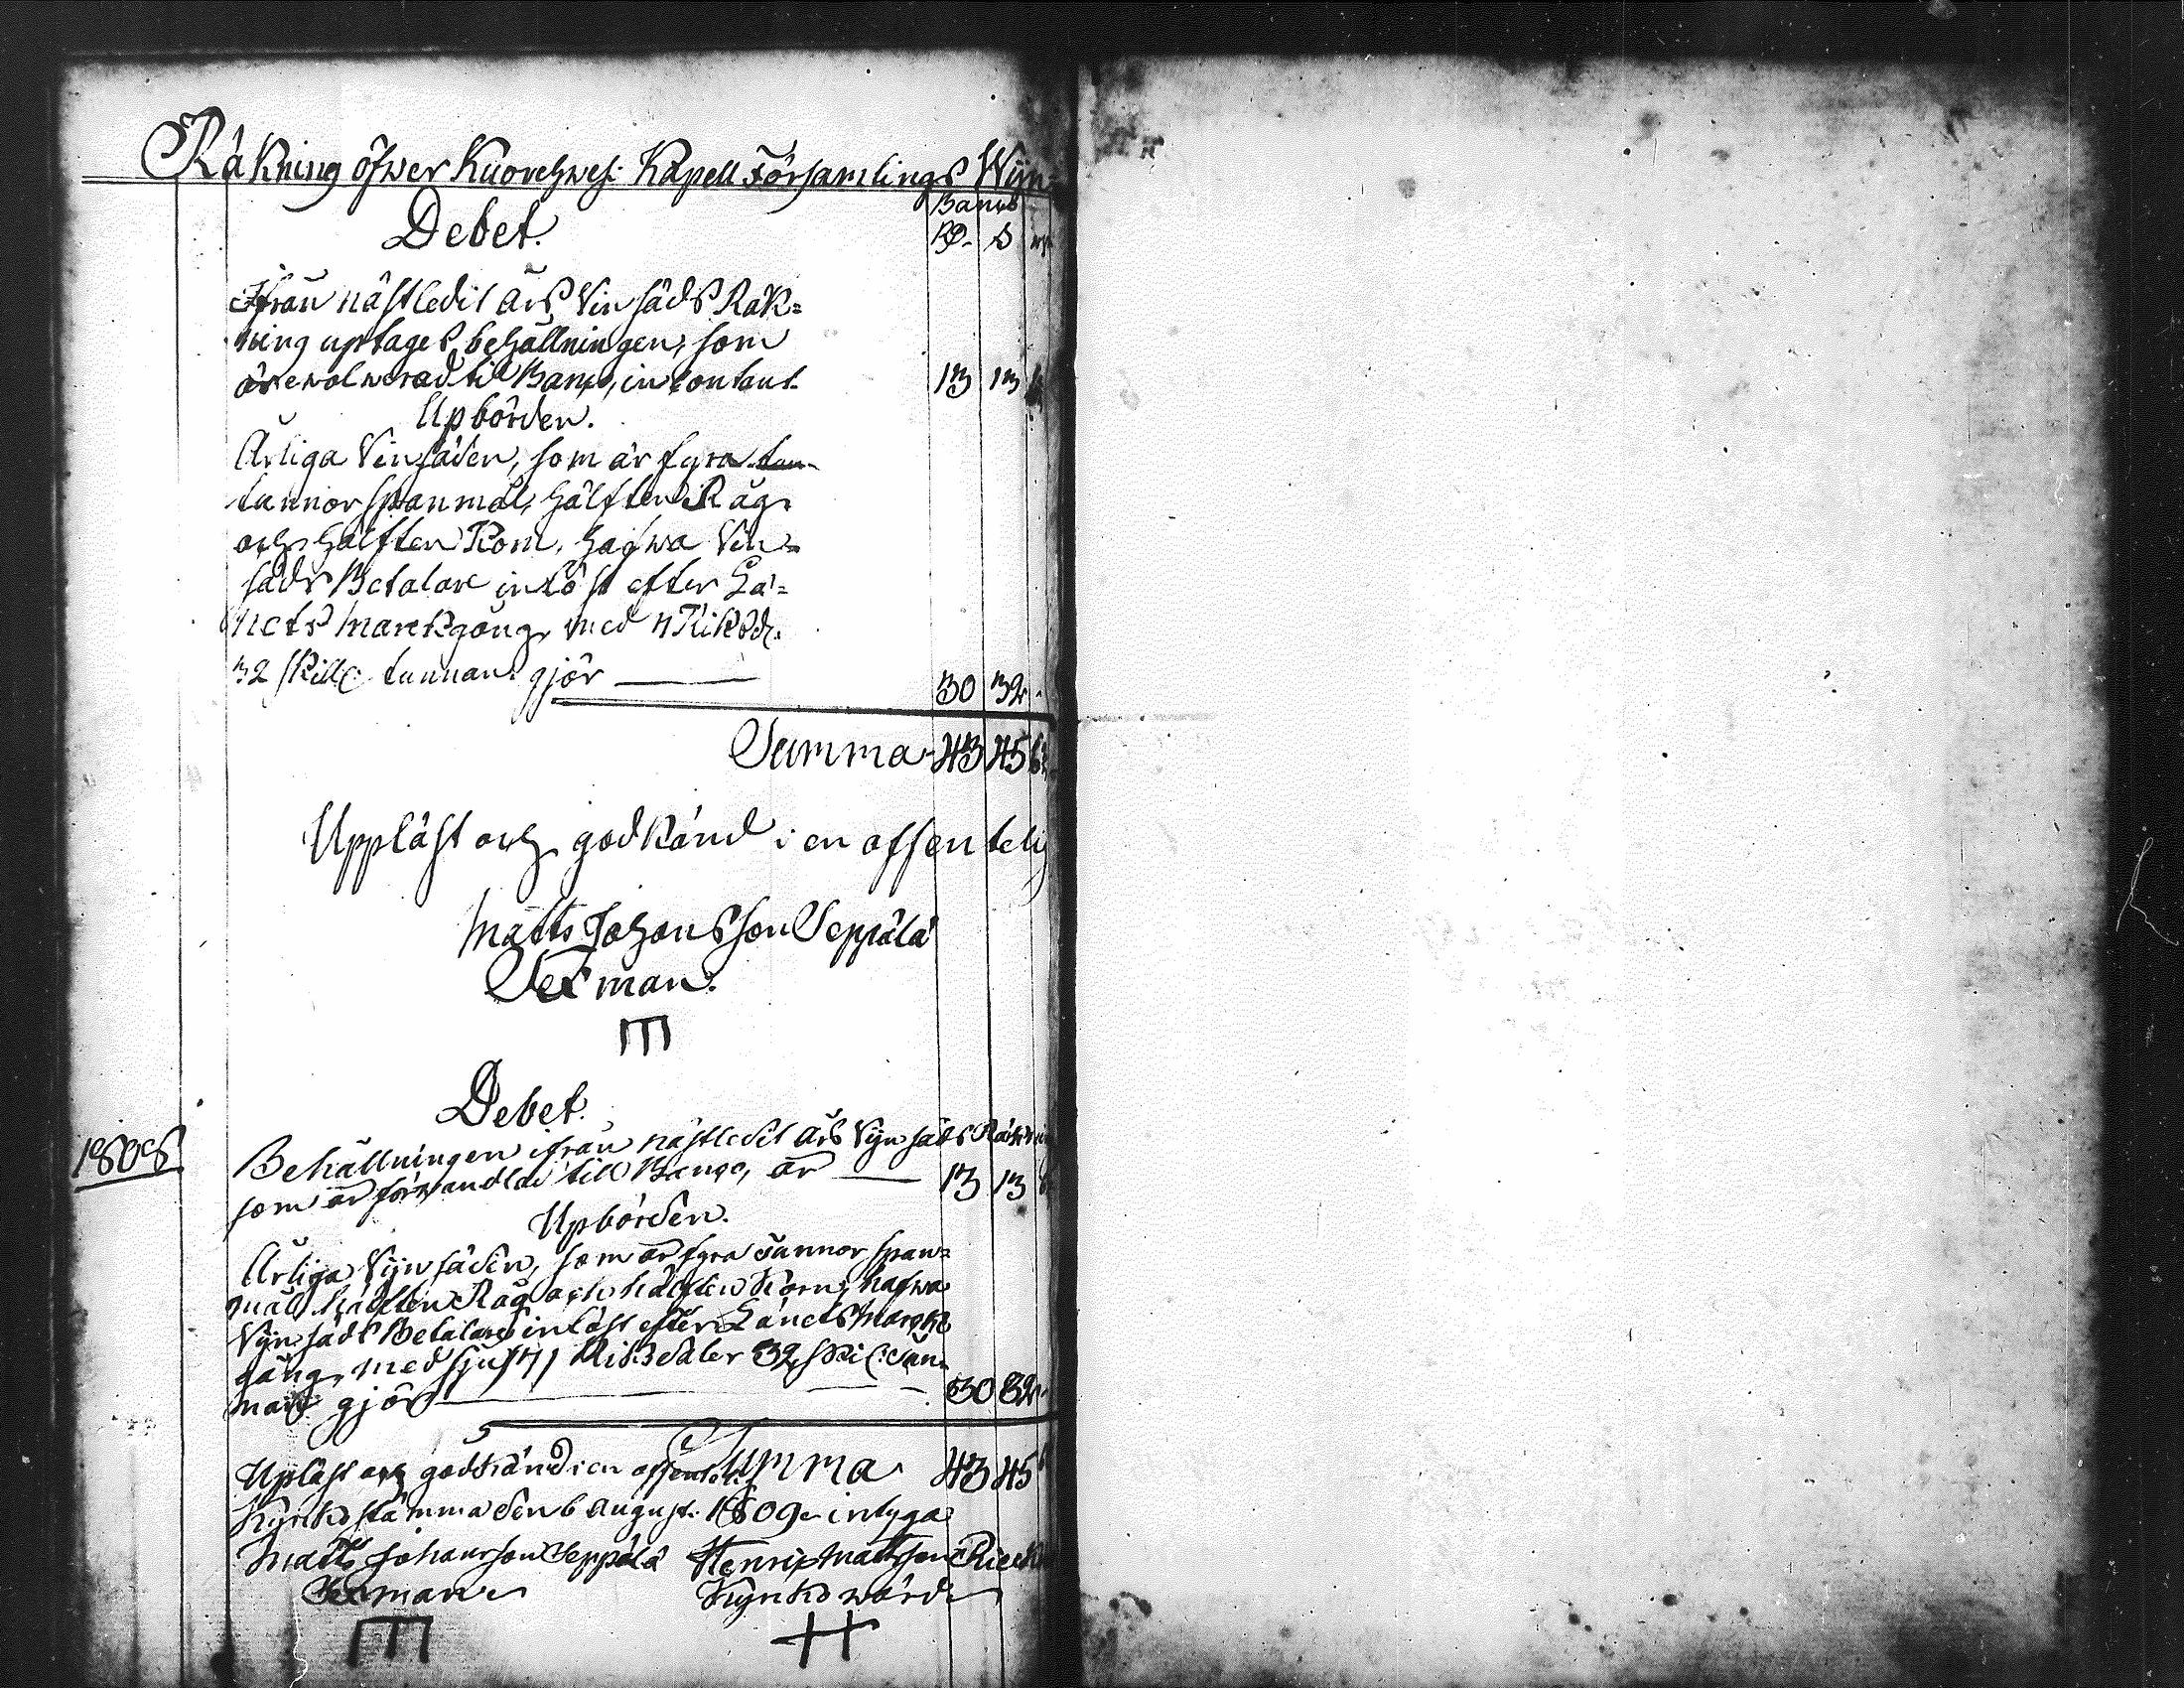 Räkning öfwer Kuorehwes: Kapell Församlings Wijn-
Banco
Debet. RD. S
Ifrån nästledit års Vin säds Räk=
ning uptages behållningen, som
är ewalverad til Banco, in contant. 13 13
Upbörden.
Årliga Vinsäden, som är fyra
tunnor spanmål, hälften Råg
och hälften Korn, hafwa Vin=
säds Betalare inlöst efter Lä=
nets markgång, med 7 Riksdr.
32 skill: tunnan gjör 30 32.
Summa 43 45
Uppläst och godkänd i en offentelig
Matts Johansson Seppälä
Sexman.
Debet.
1808. Behållningen ifrån nästledit års Vijn säds Räkning
som är förwandlad till Banco, är 13 13
Upbörden.
Årliga Vijnsäden, som är fyra Tunnor span=
mål hälften Råg och hälften Korn, hafwa
Vijnsäds Betalare inlöst efter Länets Mark
gång, med sju /7/ Riksdaler 32 skil: Tun-
nan gjör 30 32.
Summa 43 45
Upläst och godkänd i en offentelig
Kyrkostämma den 6 August. 1809. intyga
Matts Johansson Seppälä Henric Mattsson
Sexman Kyrkowärd